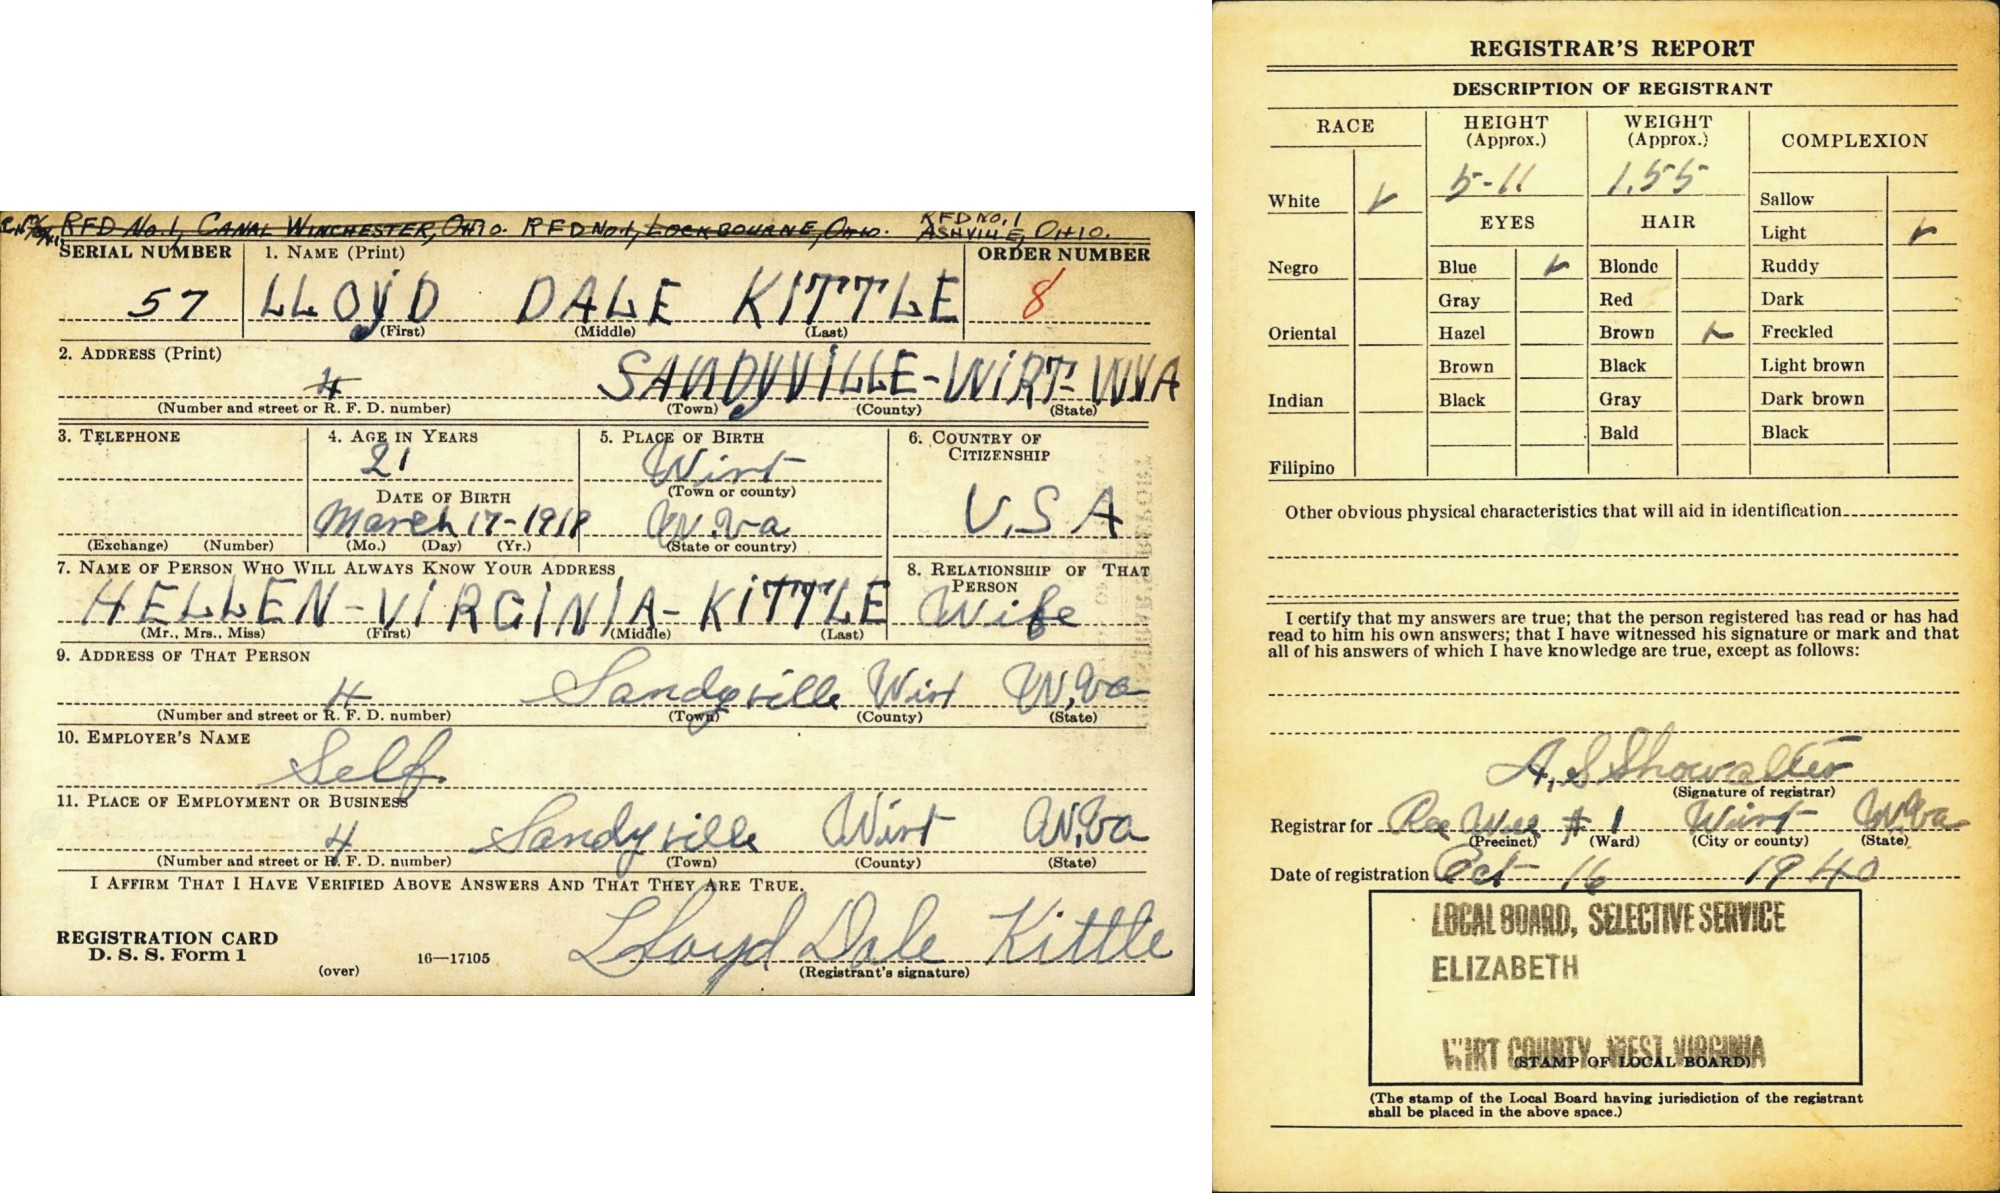 RFD No. 1, CANAL WINCHESTER, OHIO. RFD No. 1, LOCKBOURNE, OHIO. RFD NO. 1
ASHVILLE, OHIO.
SERIAL NUMBER 1. NAME (Print) ORDER NUMBER
57 LLOYD DALE KITTLE 8
(First) (Middle) (Last)
2. ADDRESS (Print)
4 SANDYVILLE-WIRT-WVA
(Number and street or R. F. D. number) (Town) (County) (State)
3. TELEPHONE 4. AGE IN YEARS 5. PLACE OF BIRTH 6. COUNTRY OF
CITIZENSHIP
21 Wirt
(Town or county)
DATE OF BIRTH
March 17-1919 W.Va U.S.A
(Exchange) (Number) (Mo.) (Day) (Yr.) (State or country)
7. NAME OF PERSON WHO WILL ALWAYS KNOW YOUR ADDRESS 8. RELATIONSHIP OF THAT
PERSON
HELLEN-VIRGINIA-KITTLE Wife
(Mr., Mrs., Miss) (First) (Middle) (Last)
9. ADDRESS OF THAT PERSON
4 Sandyville Wirt W.Va
(Number and street or R. F. D. number) (Town) (County) (State)
10. EMPLOYER'S NAME
Self.
11. PLACE OF EMPLOYMENT OR BUSINESS
4 Sandyville Wirt W.Va
(Number and street or R. F. D. number) (Town) (County) (State)
I AFFIRM THAT I HAVE VERIFIED ABOVE ANSWERS AND THAT THEY ARE TRUE.
REGISTRATION CARD
D. S. S. Form 1 16—17105 Lloyd Dale Kittle
(over) (Registrant's signature)
REGISTRAR'S REPORT
DESCRIPTION OF REGISTRANT
RACE HEIGHT
(Approx.) WEIGHT
(Approx.) COMPLEXION
5-11 155
White Sallow
EYES HAIR Light
Negro Blue Blonde Ruddy
Gray Red Dark
Oriental Hazel Brown Freckled
Brown Black Light brown
Indian Black Gray Dark brown
Bald Black
Filipino
Other obvious physical characteristics that will aid in identification
I certify that my answers are true; that the person registered has read or has had
read to him his own answers; that I have witnessed his signature or mark and that
all of his answers of which I have knowledge are true, except as follows:
A. S Showalter
(Signature of registrar)
Registrar for # 1 Wirt W.Va
(Precinct) (Ward) (City or county) (State)
Date of registration Oct 16 1940
LOCAL BOARD, SELECTIVE SERVICE
ELIZABETH
WIRT COUNTY, WEST VIRGINIA
(STAMP OF LOCAL BOARD)
(The stamp of the Local Board having jurisdiction of the registrant
shall be placed in the above space.)